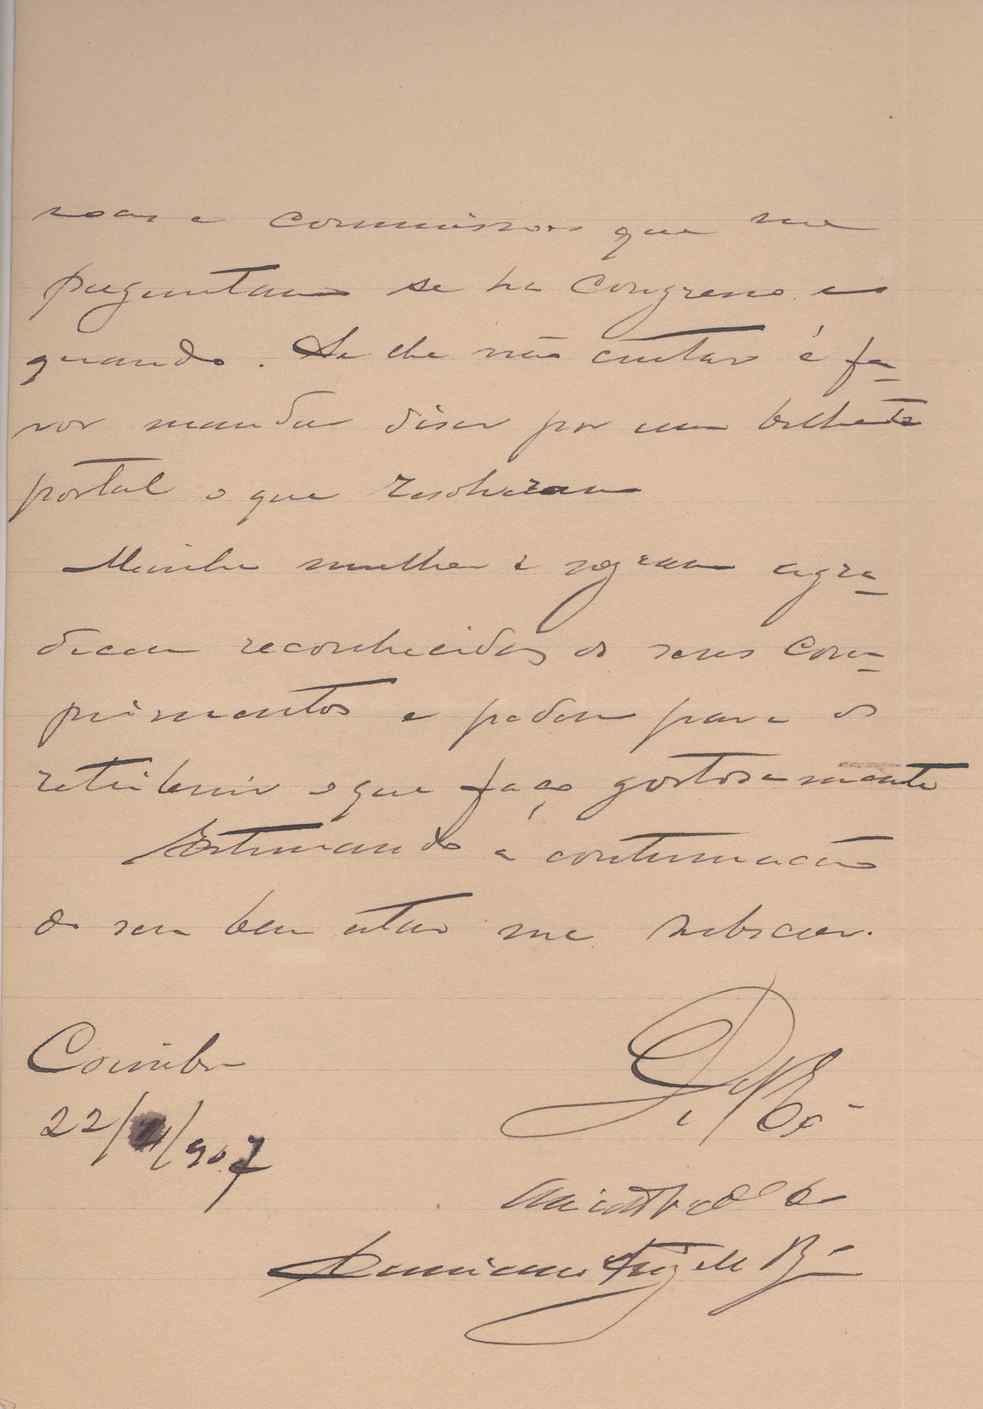 soas e commissões que me
preguntam se ha Congresso e
quando. Se lhe não custar é fa-
vor mandar diser por um bilhete
postal o que resolveram
Minha mulher e sogra agra-
decem reconhecidas os seus com-
primentos e pedem para os
retribuir o que faço gostosamente
Estimando a continuação
do seu bem estar me subscrevo.
Coimbra
22/11/907
De V. Ex.ª